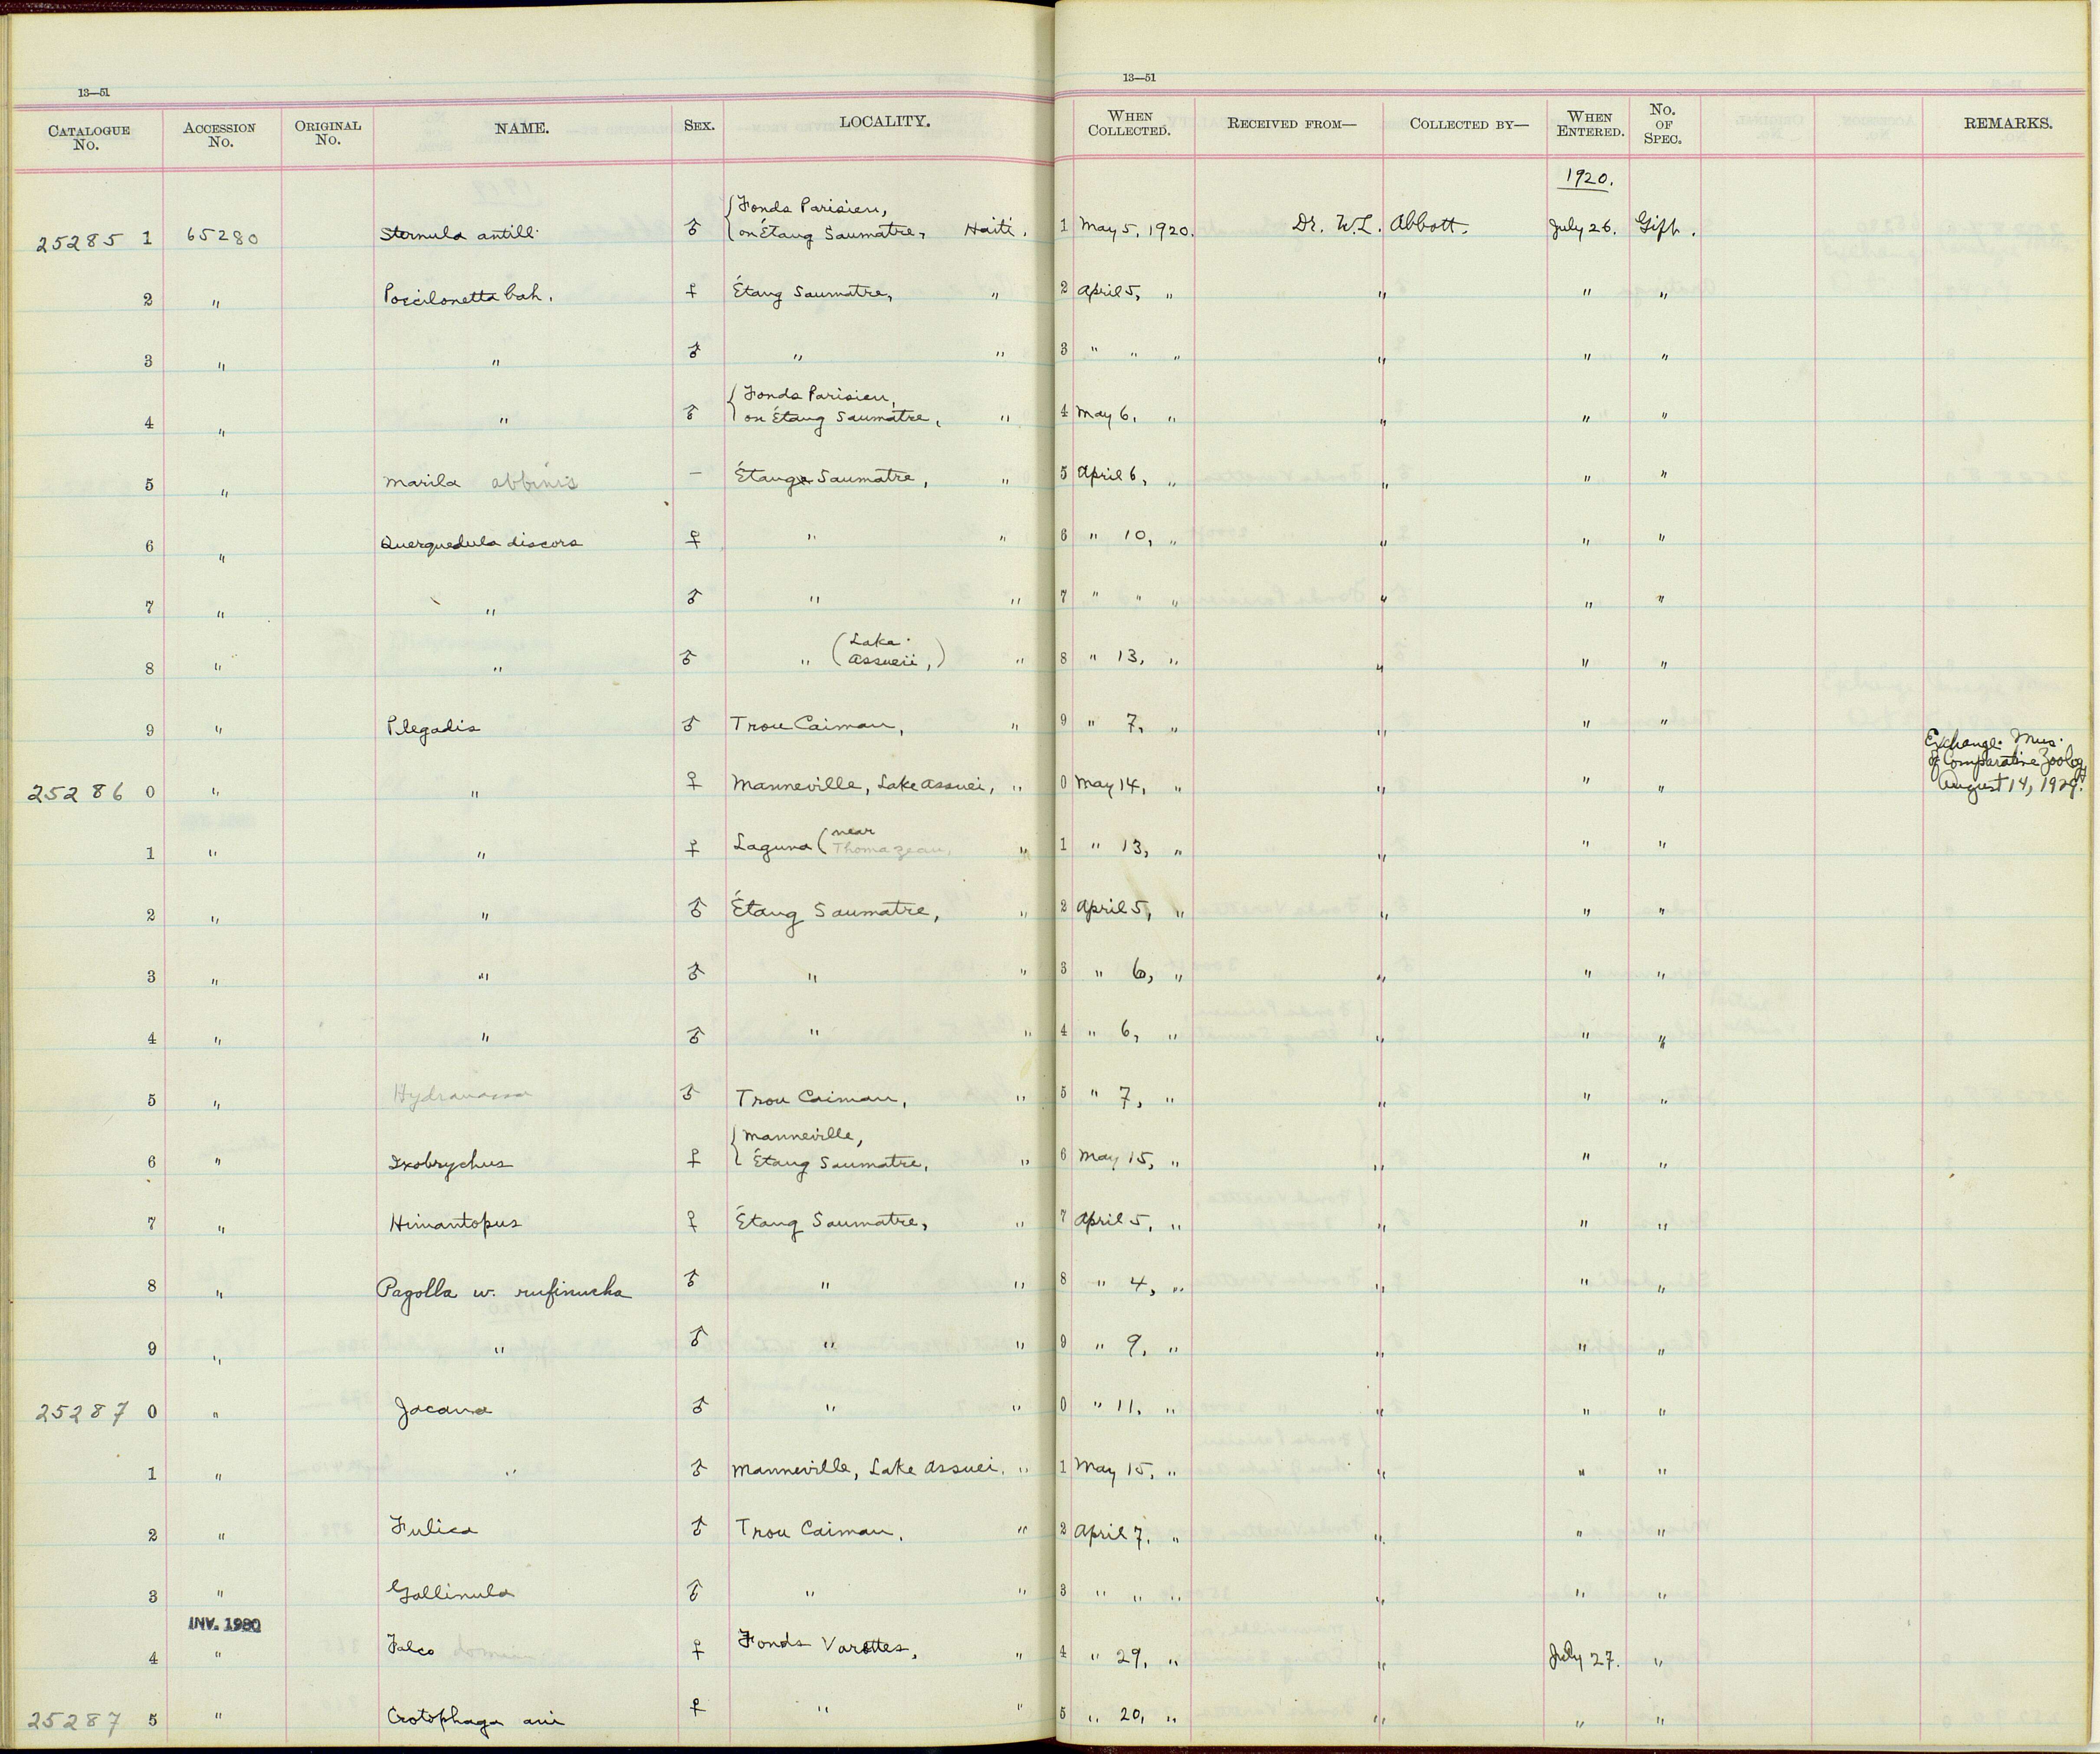 13—51
CATALOGUE No. ACCESSION No. ORIGINAL No. NAME. SEX. LOCALITY.
13—51
WHEN COLLECTED. RECEIVED FROM— COLLECTED BY— WHEN ENTERED. No. OF SPEC. REMARKS.
1920.
25285 1 65280 Sternula antill. ♂ {Fonds Parisien, on Étang Saumatre, Haiti. 1 May 5, 1920. Dr. W.L. Abbott. July 26. Gift.
2 " Poecilonetta bah. ♀ Étang Saumatre, " 2 April 5, " " " "
3 " " ♂ " " 3 " " " " " "
4 " " ♂ {Fonds Parisien, on Étang Saumatre, " 4 May 6, " " " "
5 " Marila affinis — Étang Saumatre, " 5 April 6, " " " "
6 " Querquedula discors ♀ " " 6 " 10, " " " "
7 " " ♂ " " 7 " " " " " "
8 " " ♂ " (Lake Assueii,) " 8 " 13, " " " "
9 " Plegadis ♂ Trou Caiman, " 9 " 7, " " " "
25286 0 " " ♀ Manneville, Lake Assuei, " 0 May 14, " " " " Exchange. Mus. of Comparative Zoology August 14, 1929.
1 " " ♀ Laguna (near Thomazeau, " 1 " 13, " " " "
2 " " ♂ Étang Saumatre, " 2 April 5, " " " "
3 " " ♂ " " 3 " 6, " " " "
4 " " ♂ " " 4 " 6, " " " "
5 " Hydranassa ♂ Trou Caiman, " 5 " 7, " " " "
6 " Ixobrychus ♀ {Manneville, Étang Saumatre, " 6 May 15, " " " "
7 " Himantopus ♀ Étang Saumatre, " 7 April 5, " " " "
8 " Pagolla w. rufinucha ♂ " " 8 " 4, " " " "
9 " " ♂ " " 9 " 9, " " " "
25287 0 " Jacana ♂ " " 0 " 11, " " " "
1 " " ♂ Manneville, Lake Assuei, " 1 May 15, " " " "
2 " Fulica ♂ Trou Caiman, " 2 April 7, " " " "
3 " Gallinula ♂ " " 3 " " " " " "
INV. 1980
4 " Falco domin ♀ Fonds Varettes, " 4 " 29, " " July 27. "
25287 5 " Crotophaga ani ♀ " " 5 " 20, " " " "